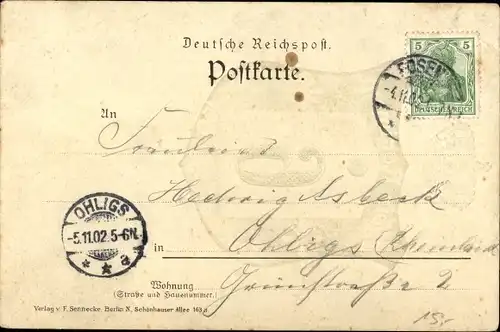 Deutsche Reichspost.
Postkarte.
5 5
DEUTSCHES REICH
POSEN
-4.11.02
An
Fräulein
Hedwig Asbeck
OHLIGS
-5.11.02.5-6N.
* * a
in Ohligs Rheinland
Wohnung
(Straße und Hausnummer.)
Grünstraße 2
Verlag v. F. Sennecke, Berlin N, Schönhauser Allee 163a.
15,-